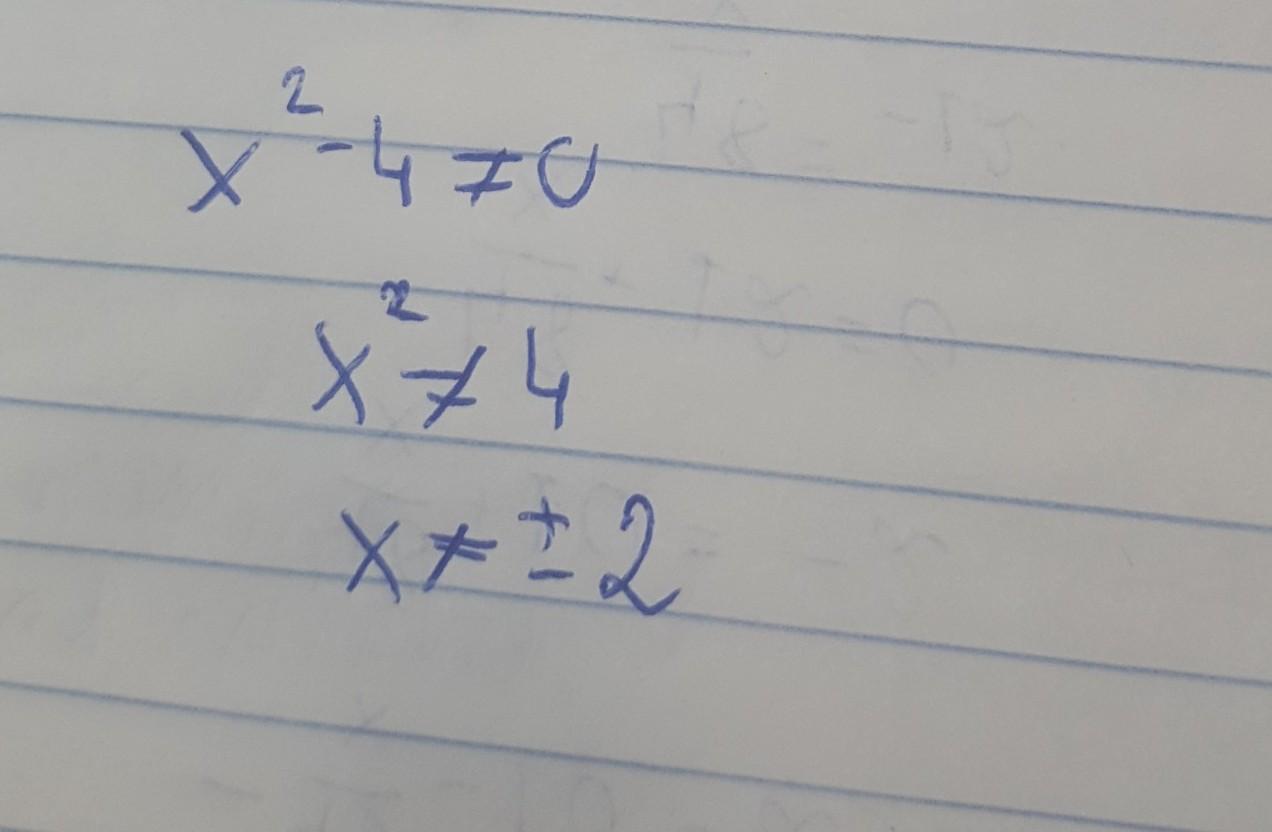 x² - 4 ≠ 0
x² ≠ 4
x ≠ ± 2